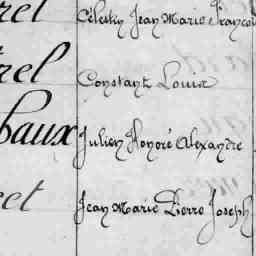 rel Célestin Jean Marie François
rel Constant Louis
baux Julien Honoré Alexandre
cet Jean Marie Pierre Joseph